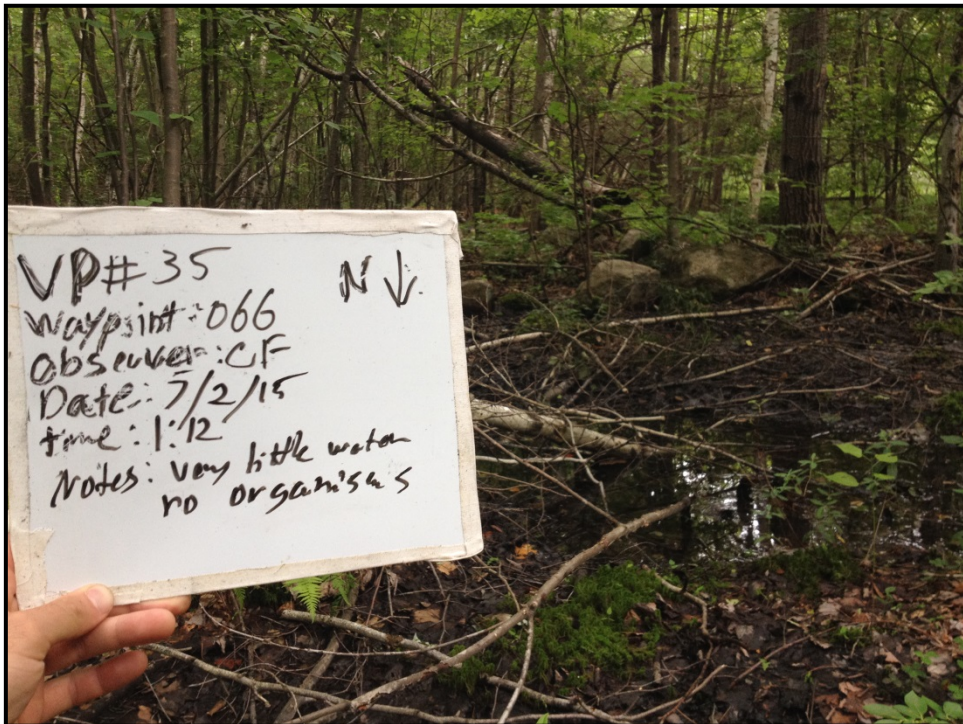 VP# 35 N ↓
Waypoint: 066
Observer: CF
Date: 7/2/15
time: 1:12
Notes: Very little water
no organisms